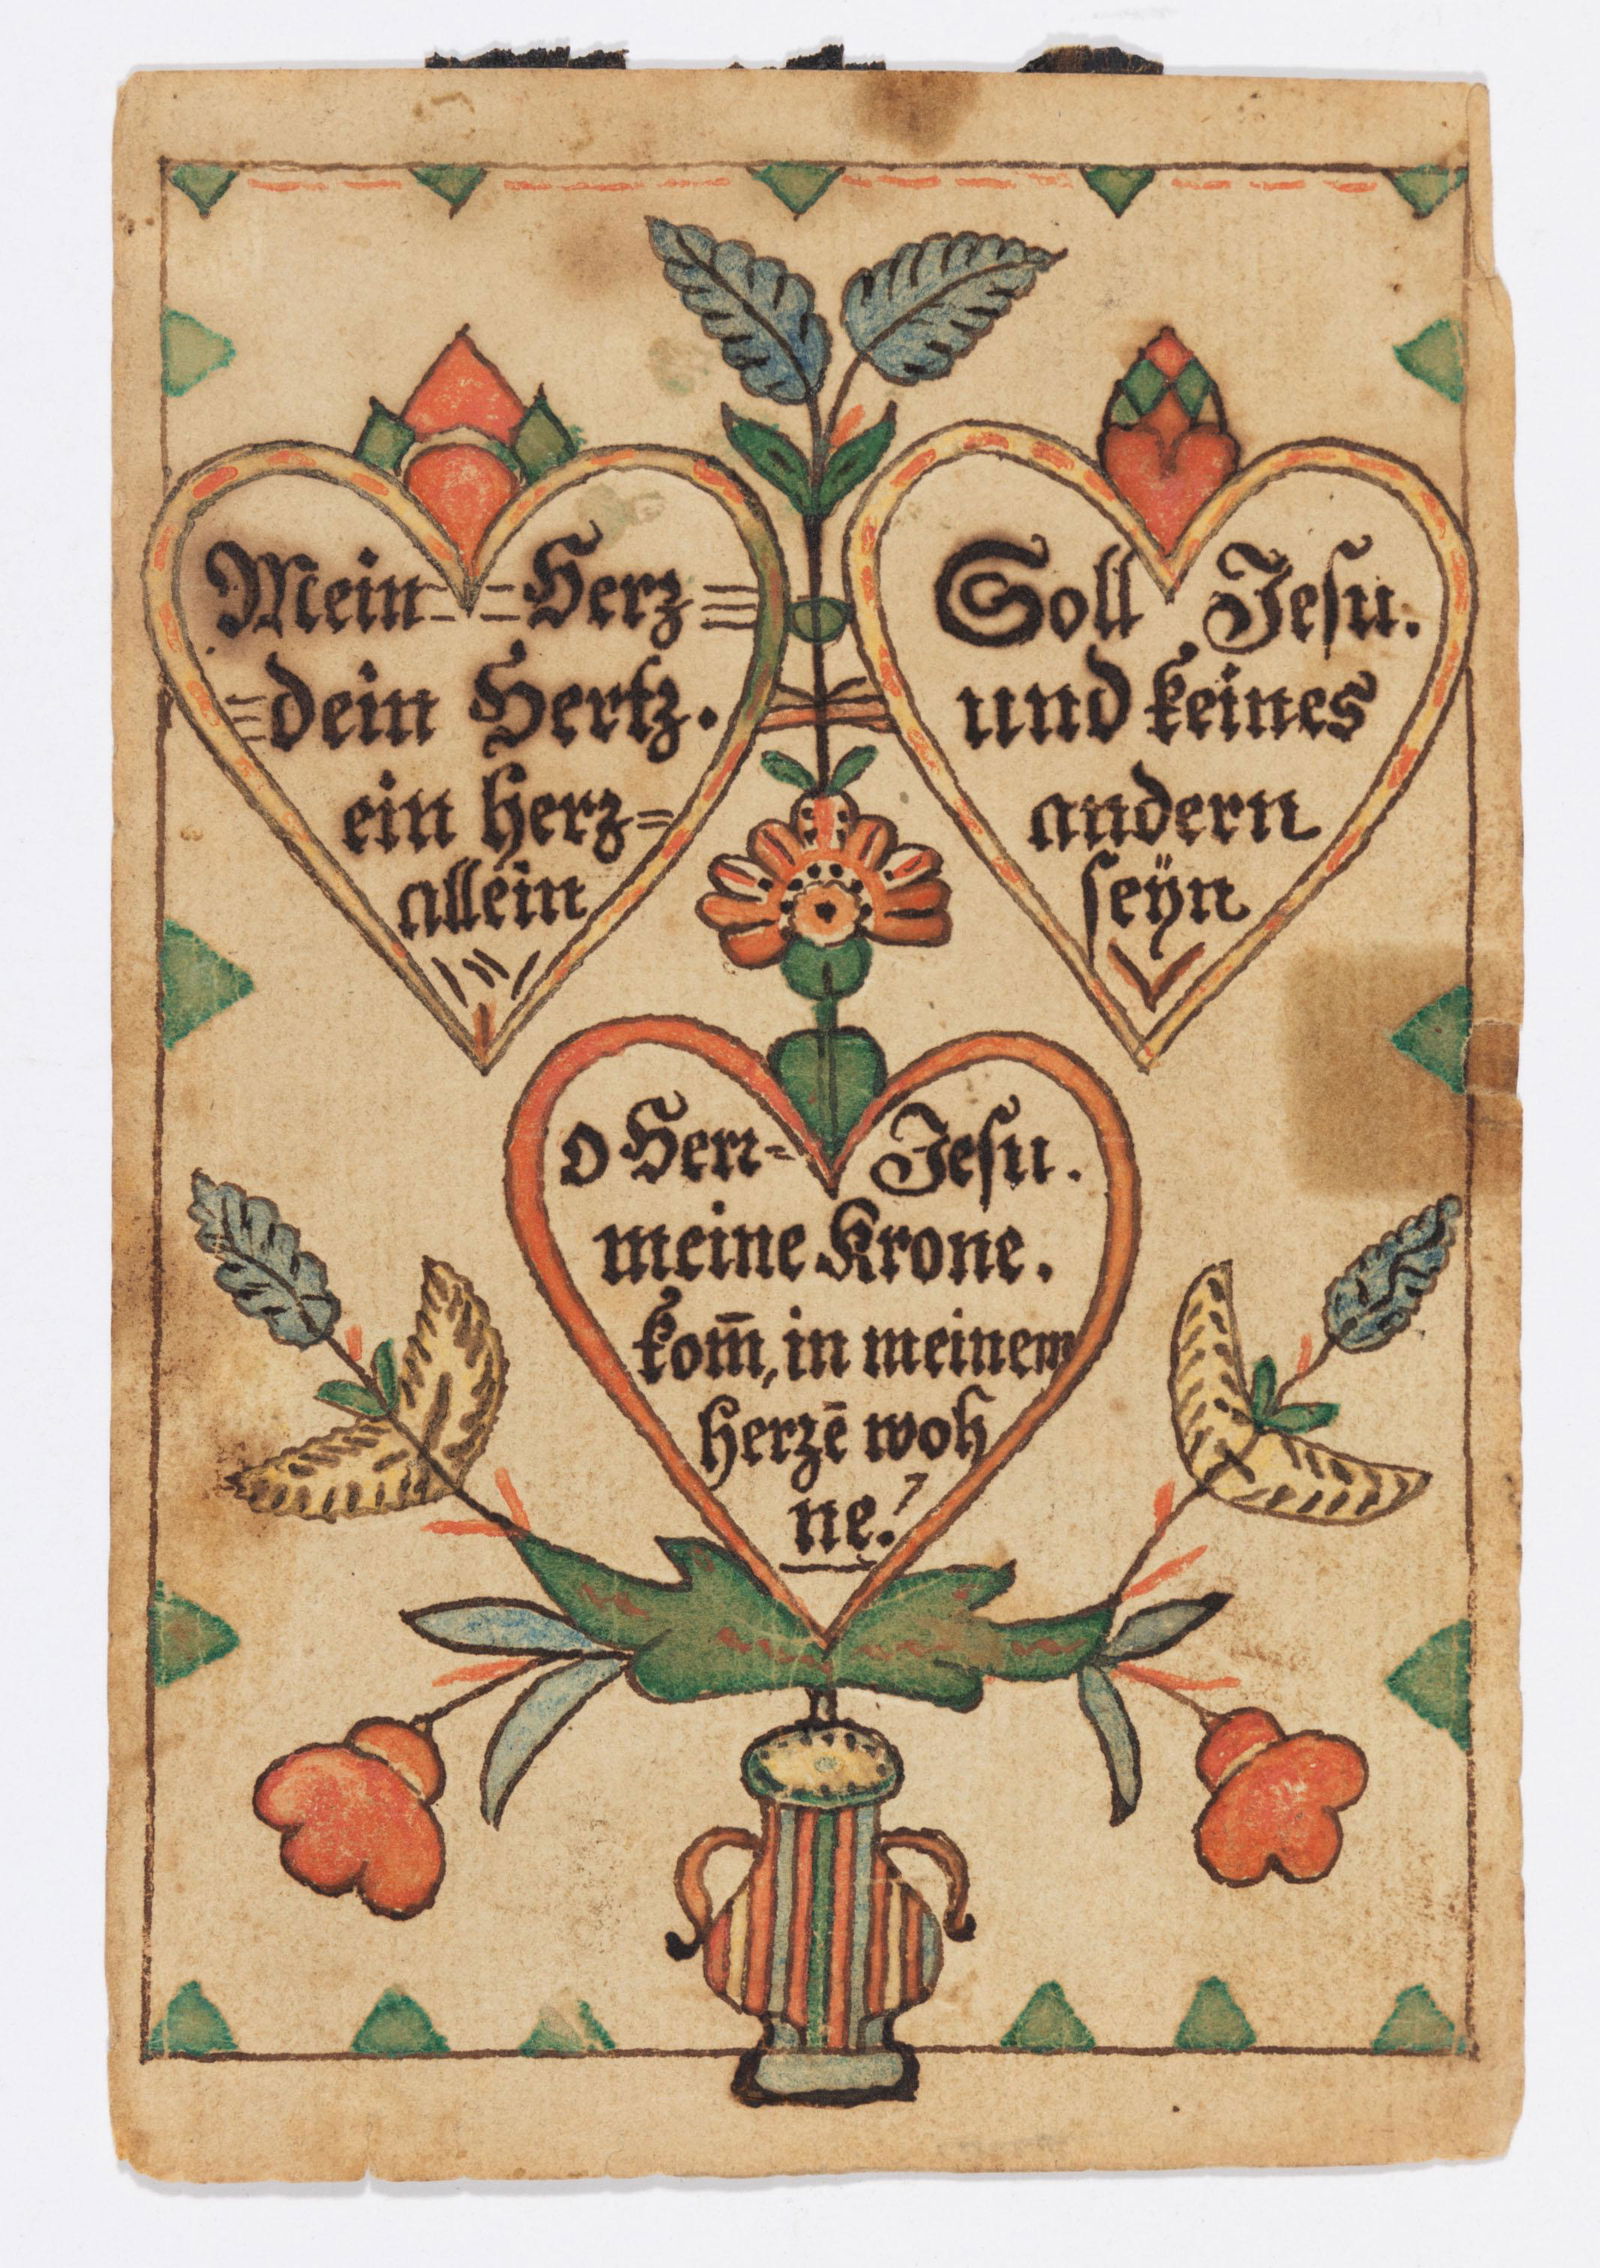 Mein Herz
dein Hertz.
ein herz=
allein
Soll Jesu.
und keines
andern
seÿn
o Herr= Jesu.
meine Krone.
kom̄, in meinem
herzē woh
ne.